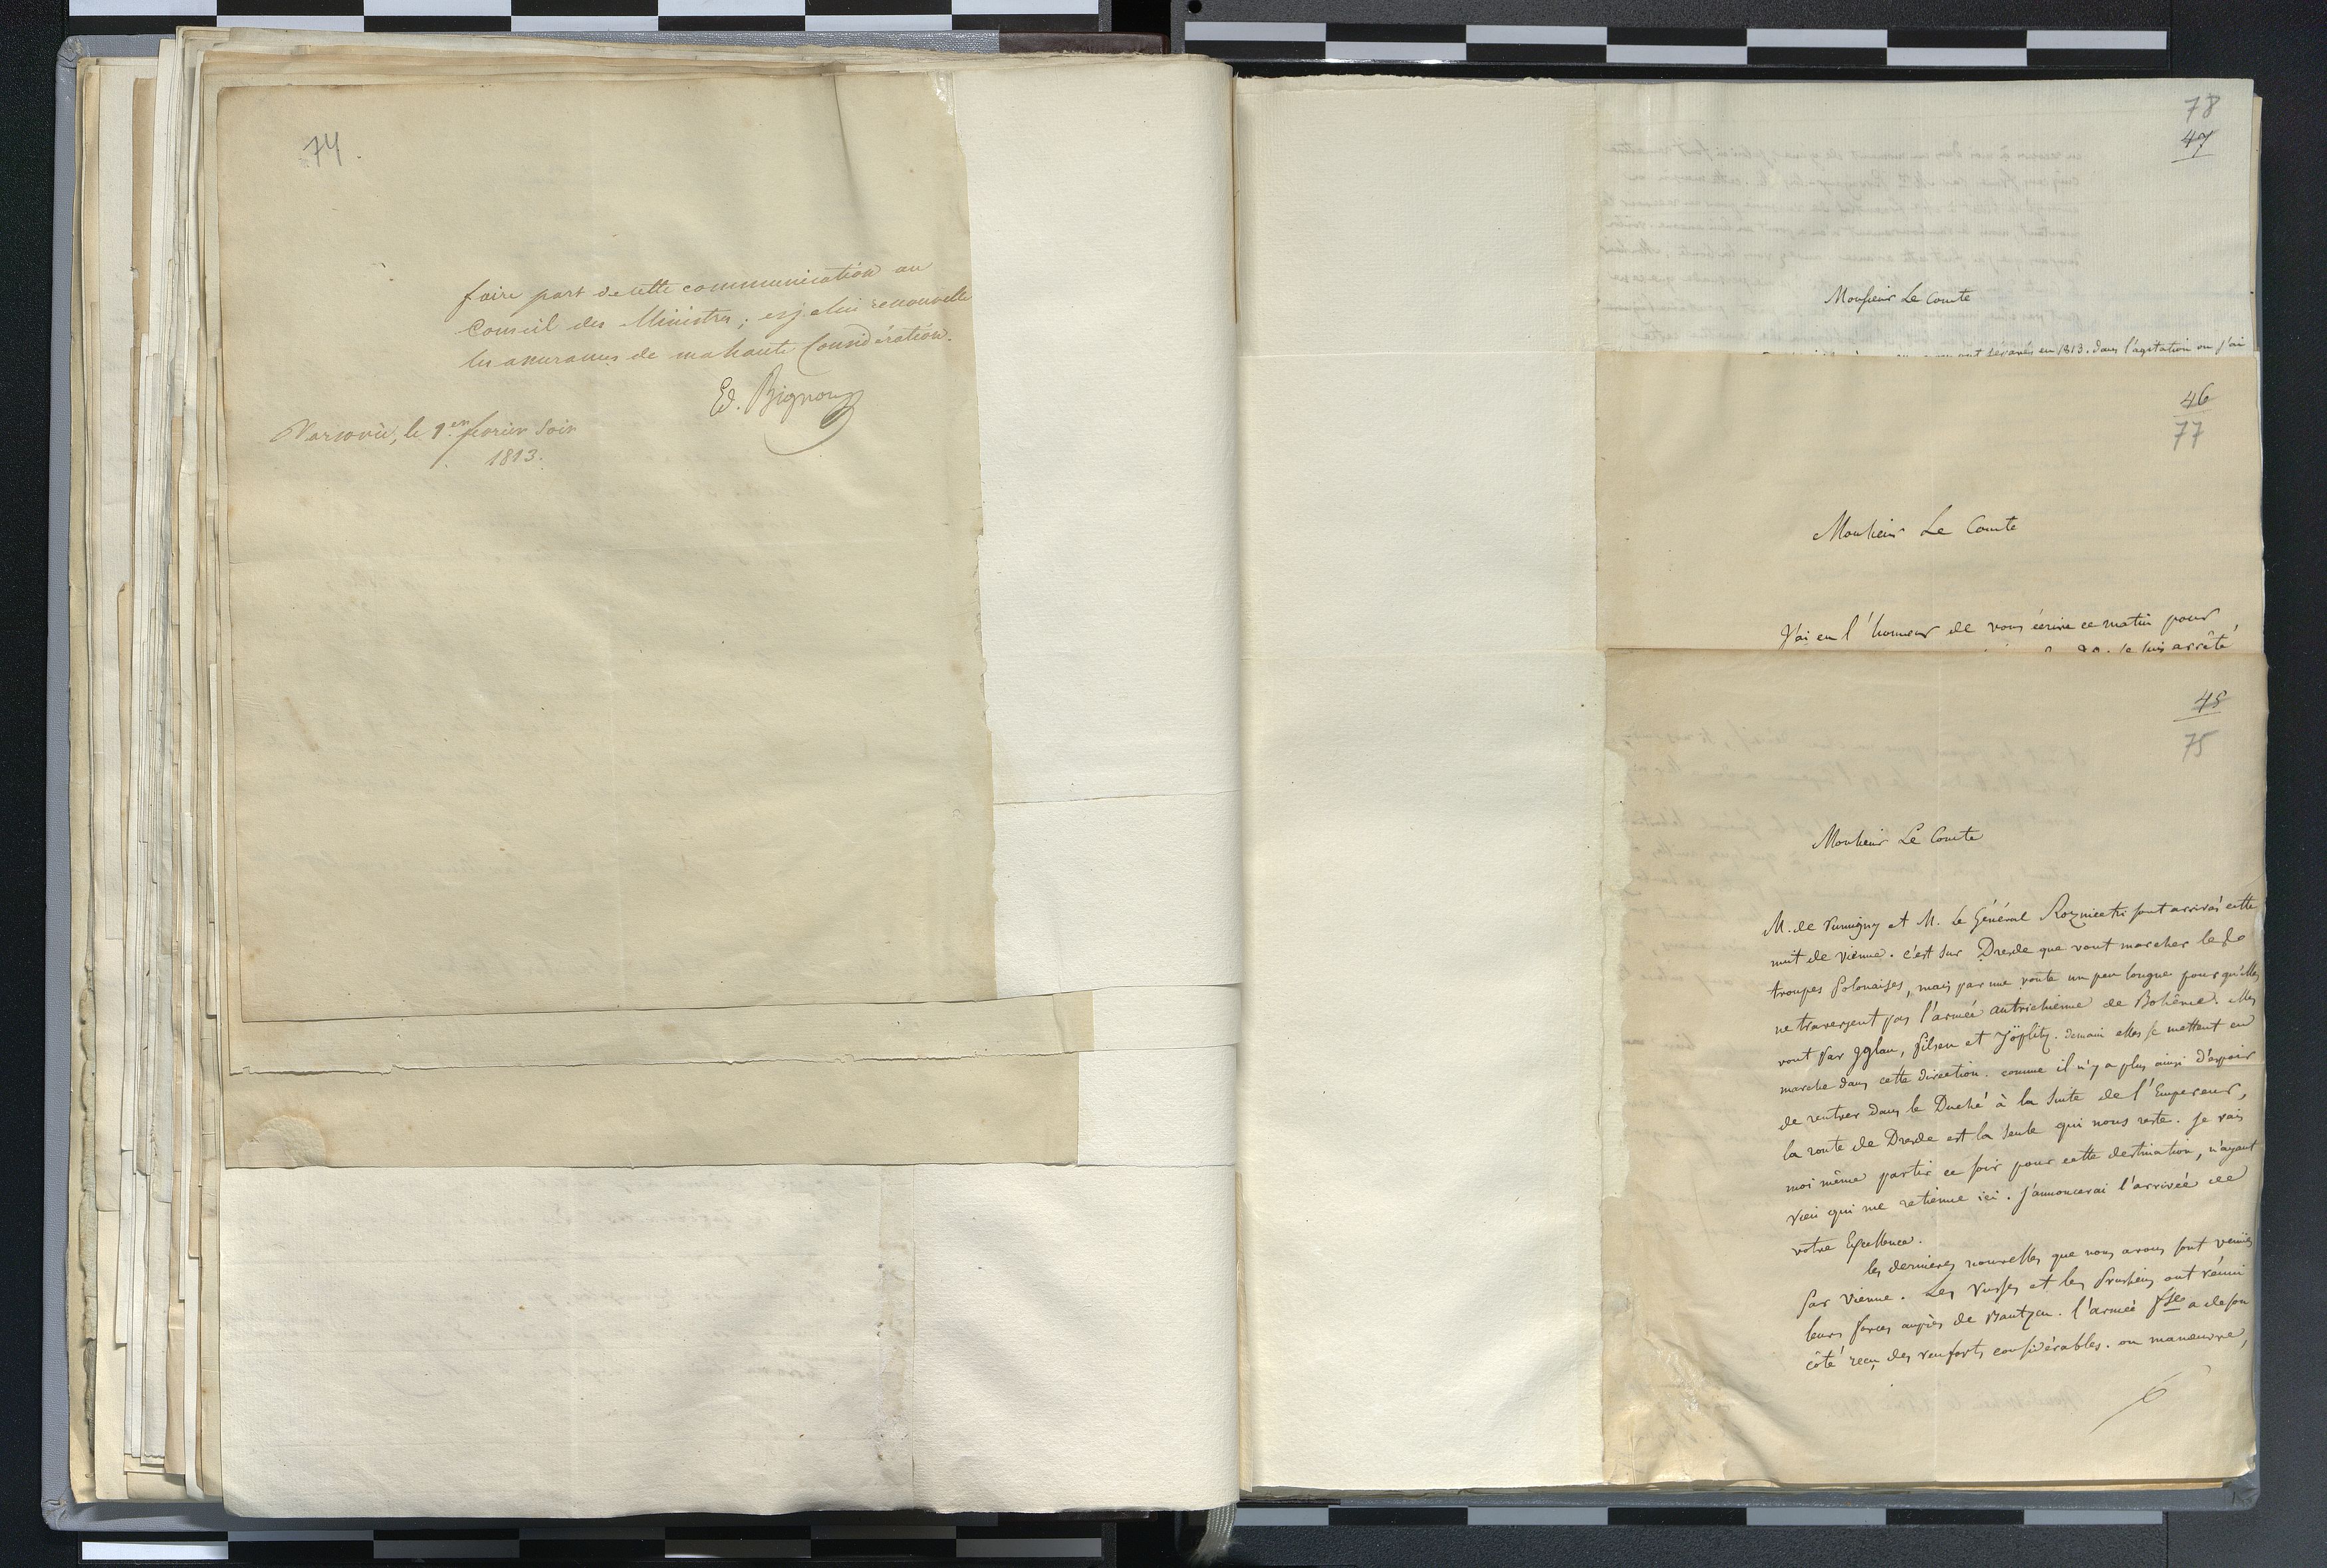 74.
faire part de cette communication au
Conseil des Ministres; et je lui renouvelle
les assurances de ma haute Considération.
Ed. Bignon
Varsovie, le 1.er février Soir
1813.
78
47
Monsieur Le Comte
séparés en 1813. dans l'agitation ou j'ai
46
77
Monsieur Le Comte
J'ai eu l'honneur de vous écrire ce matin pour
je suis arrêté
45
75
Monsieur Le Comte
M. de Rumigny et M. le Général Rozniecki sont arrivés cette
nuit de Vienne. c'est sur Dresde que vont marcher les
troupes Polonaises, mais par une route un peu longue pour qu'elles
ne traversent pas l'armée autrichienne de Bohême. elles
vont par Iglau, Pilsen et Töplitz. demain elles se mettent en
marche dans cette direction. comme il n'y a plus ainsi d'espoir
de rentrer dans le Duché à la suite de l'Empereur,
la route de Dresde est la seule qui nous reste. je vais
moi même partir ce soir pour cette destination, n'ayant
rien qui me retienne ici. j'annoncerai l'arrivée de
votre Excellence.
les dernieres nouvelles que nous avons sont venües
par Vienne. Les Russes et les Prussiens ont réuni
leurs forces auprès de Bautzen. l'armée fse a de son
côté reçu des renforts considérables. on manœuvre,